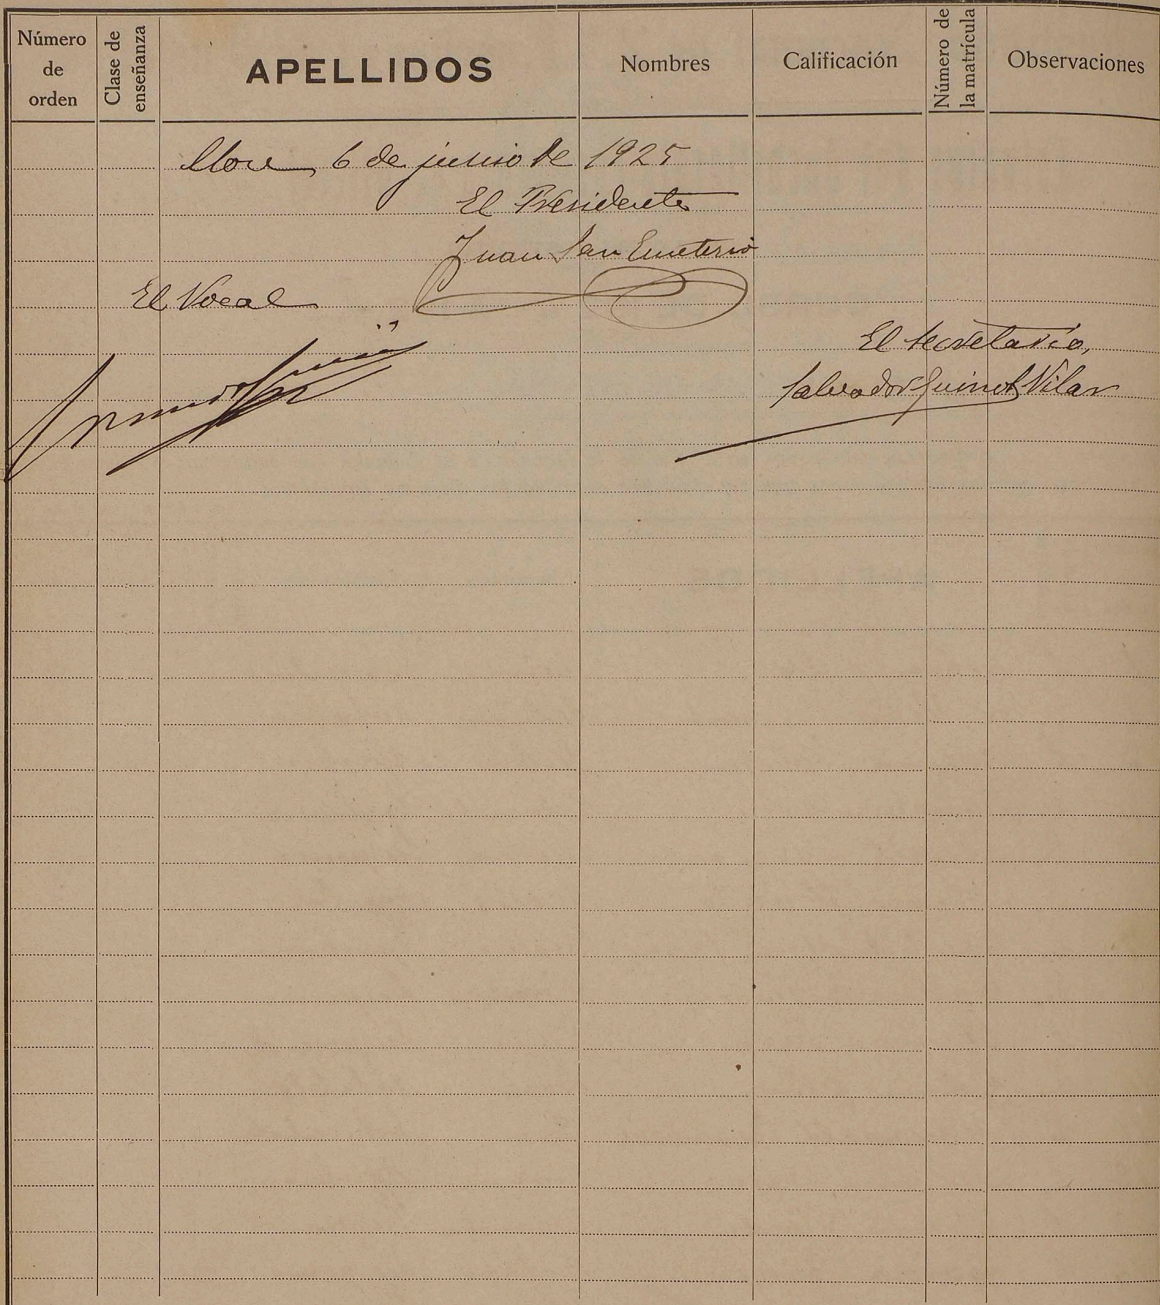 Número de orden
Clase de enseñanza
APELLIDOS
Nombres
Calificación
Número de la matrícula
Observaciones
6 de junio de 1925
El Presidente
Juan San Emeterio
El Vocal
El secretario,
Salvador Guinot Vilar